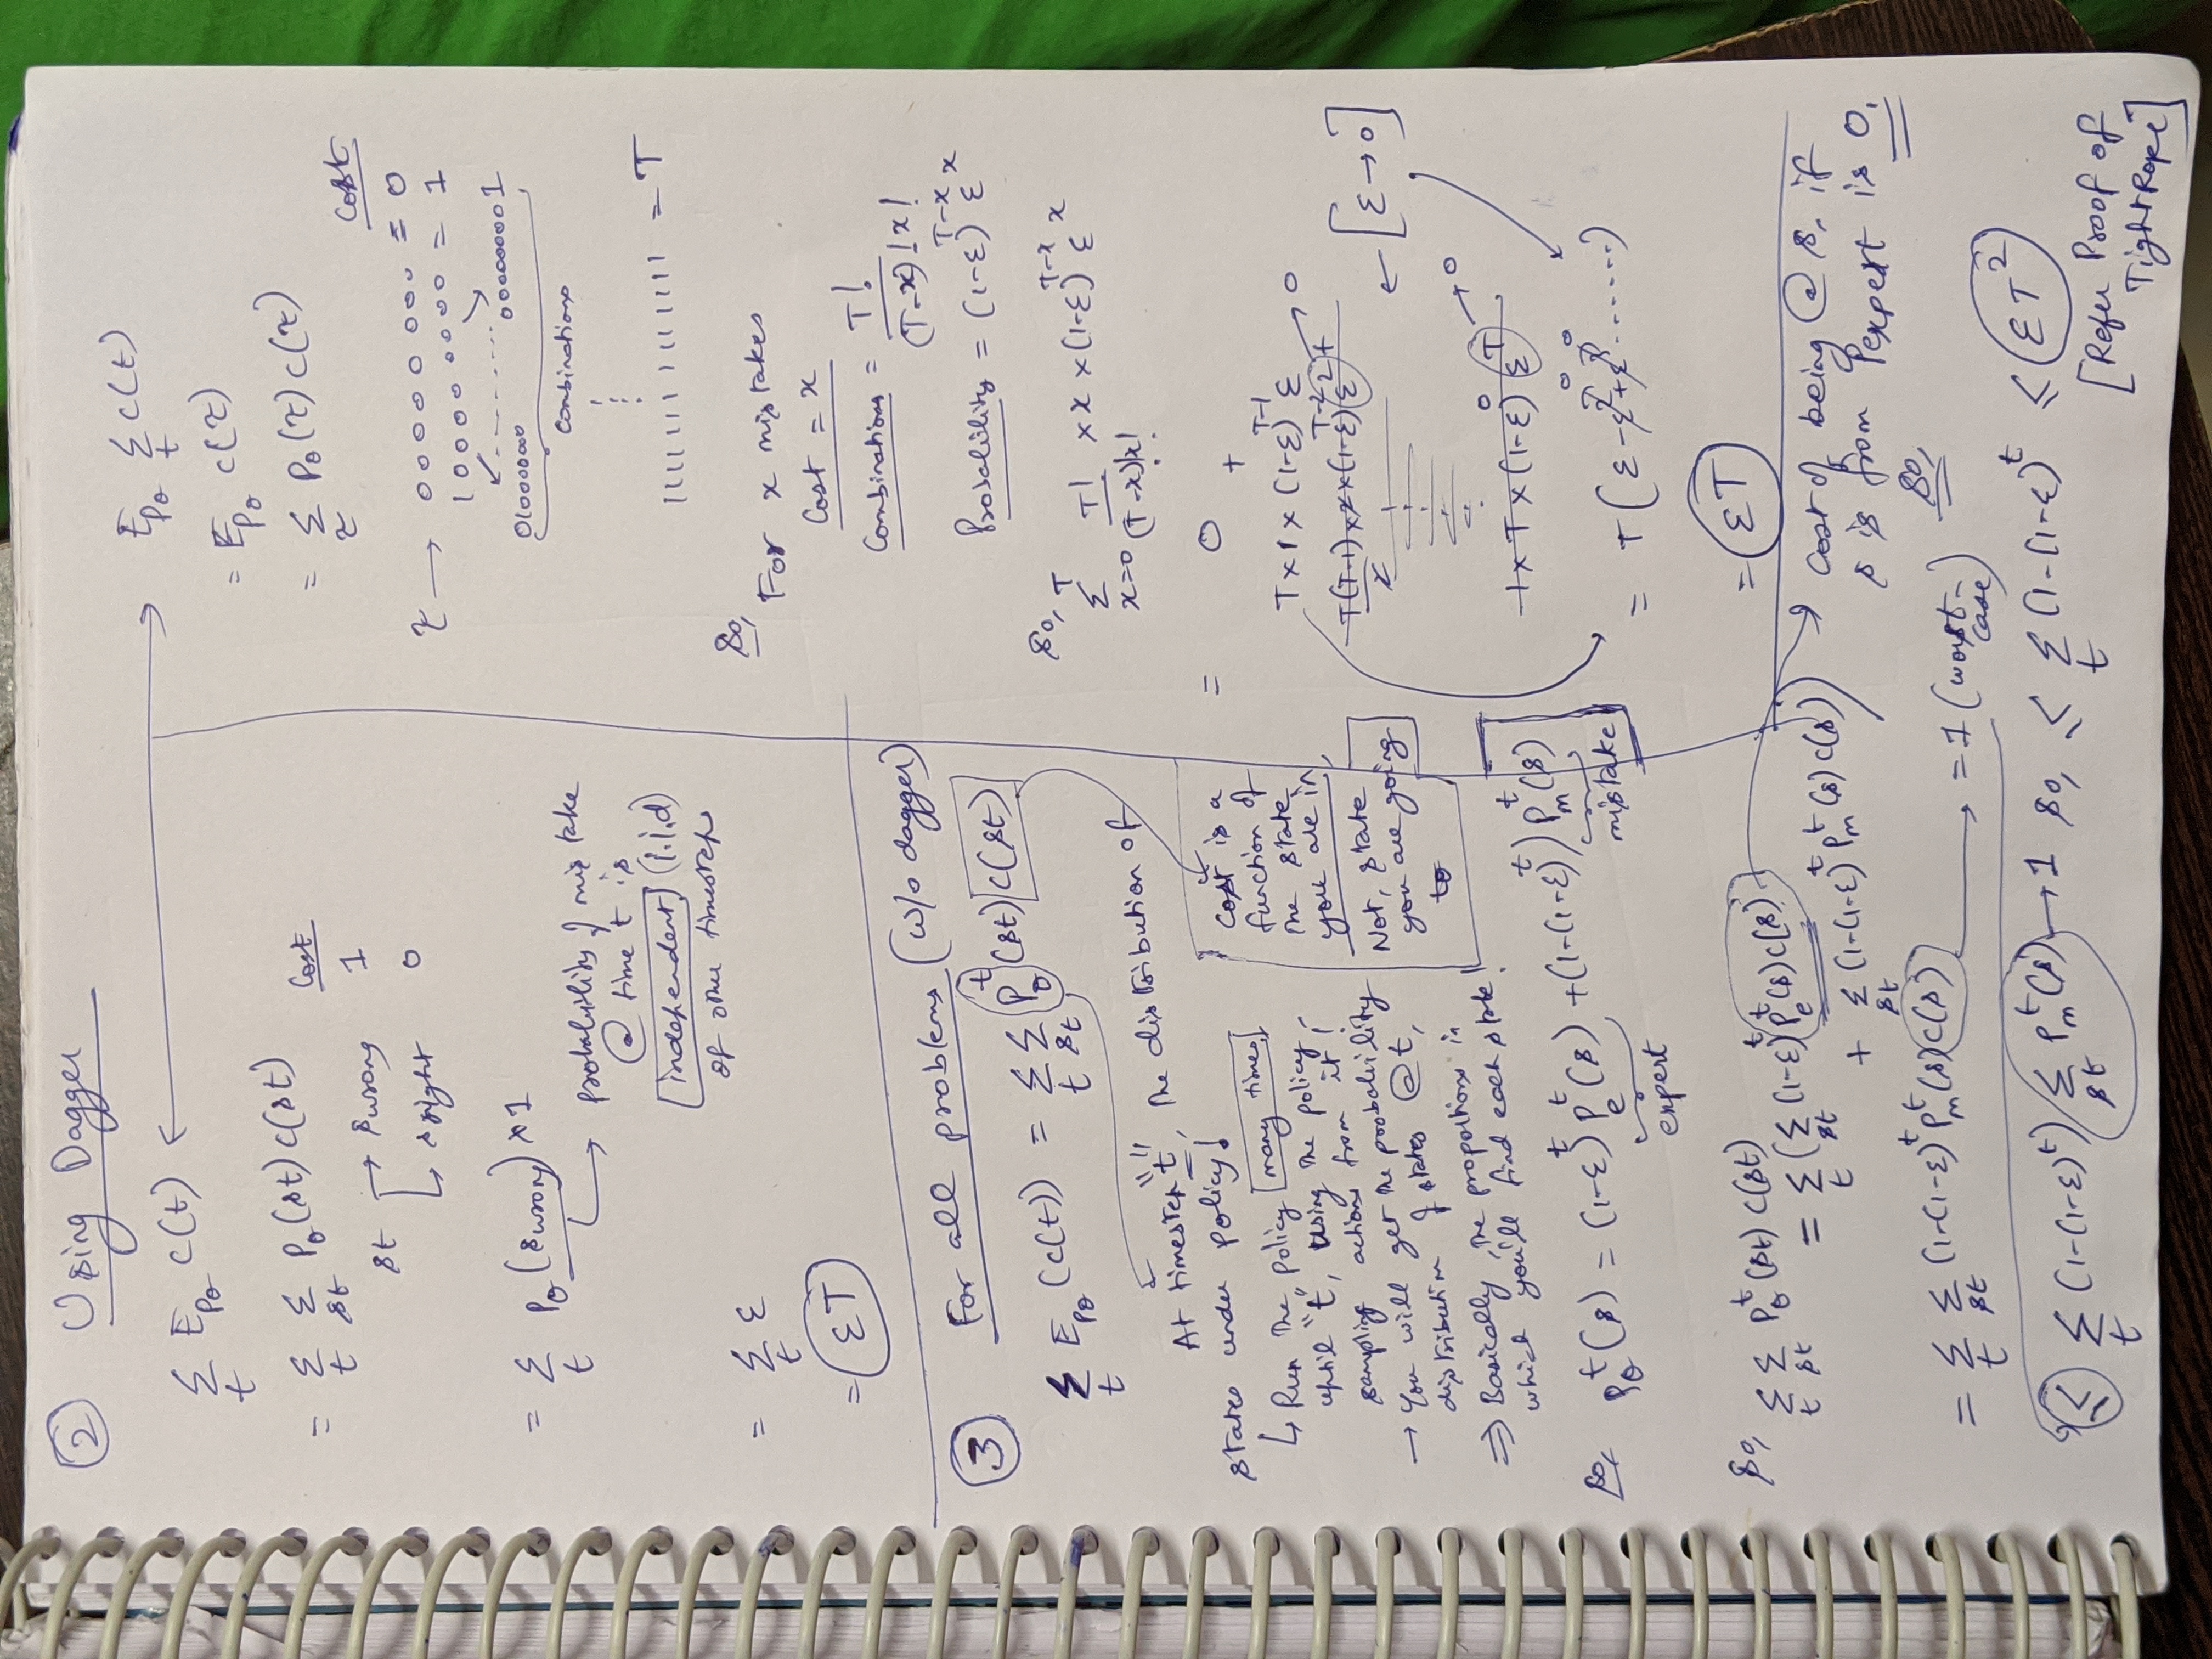 ② Using Dagger
Σ_t E_{pθ} c(t) ⟷
= Σ_t Σ_{st} Pθ(st) c(st)
Cost
st → swrong 1
↳ sright 0
= Σ_t Pθ(swrong) × 1
↳ probability of mistake
@ time t is
independent (i.i.d)
of other timesteps
= Σ_t ε
= εT
E_{pθ} Σ_t c(t)
= E_{pθ} c(τ)
= Σ_τ Pθ(τ) c(τ)
Cost
τ → 00000 000 = 0
10000 0000 = 1
01000000 - - - - - - 000000001
Combinations
1111111 1111111 = T
So,
For x mistakes
Cost = x
Combinations = T! / (T-x)! x!
Probability = (1-ε)^{T-x} ε^x
So,
Σ_{x=0}^{T} T! / (T-x)! x! × x × (1-ε)^{T-x} ε^x
= 0 +
T × 1 × (1-ε)^{T-1} ε
T(T-1)/2 × 2 × (1-ε)^{T-2} ε² + → 0
← [ε → 0]
1 × T × (1-ε)^0 ε^T → 0
= T(ε - ε² + ε³ ......)
= εT
③ For all problems (w/o dagger)
Σ_t E_{pθ}(c(t)) = Σ_t Σ_{st} Pθ^t(st) c(st)
At timestep "t", the distribution of
states under policy!
↳ Run the policy many times
until "t", using the policy,
sampling actions from it!
→ You will get the probability
distribution of states @t,
⇒ Basically, the proportions in
which you'll find each state!
Cost is a
function of
the state
you are in,
Not, state
you are going
to
So, Pθ^t(s) = (1-ε)^t Pe^t(s) + (1-(1-ε)^t) Pm^t(s)
expert
mistake
So, Σ_t Σ_{st} Pθ^t(st) c(st)
= Σ_t (Σ_{st} (1-ε)^t Pe^t(s) c(s)
+ Σ_{st} (1-(1-ε)^t Pm^t(s) c(s))
→ Cost of being @ s, if
s is from Pexpert is 0.
So,
= Σ_t Σ_{st} (1-(1-ε)^t Pm^t(s) c(s) → = 1 (worst-
case)
≤ Σ_t (1-(1-ε)^t) Σ_{st} Pm^t(s) → 1 So, ≤ Σ_t (1-(1-ε)^t ≤ εT²
[Refer Proof of
TightRope]